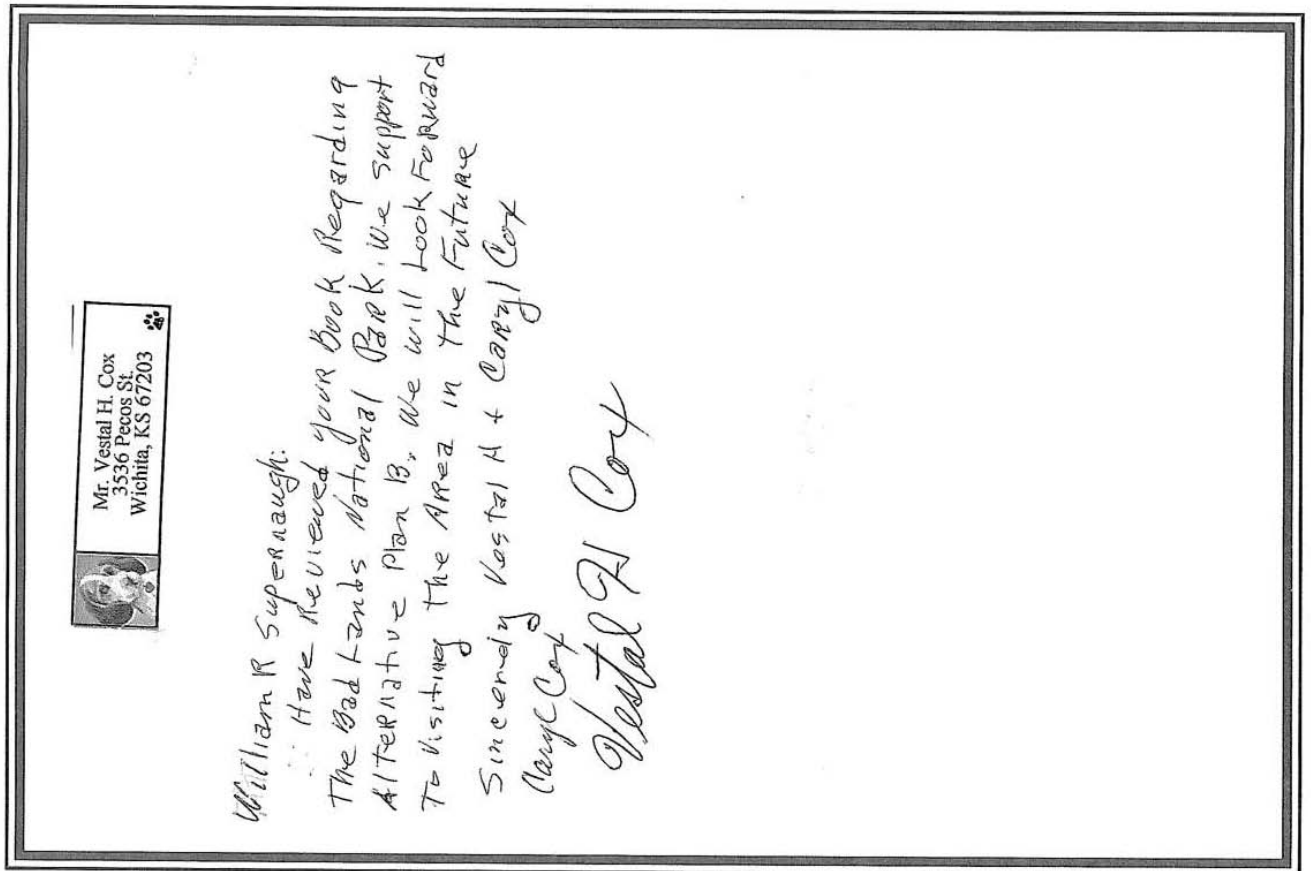 Mr. Vestal H. Cox
3536 Pecos St.
Wichita, KS 67203
William R Supernaugh:
Have Reviewed your Book Regarding
The Bad Lands National Park. We support
Alternative Plan B. We will Look Forward
To Visiting The Area in The Future
Sincerely Vestal H + Caryl Cox
Caryl Cox
Vestal H Cox